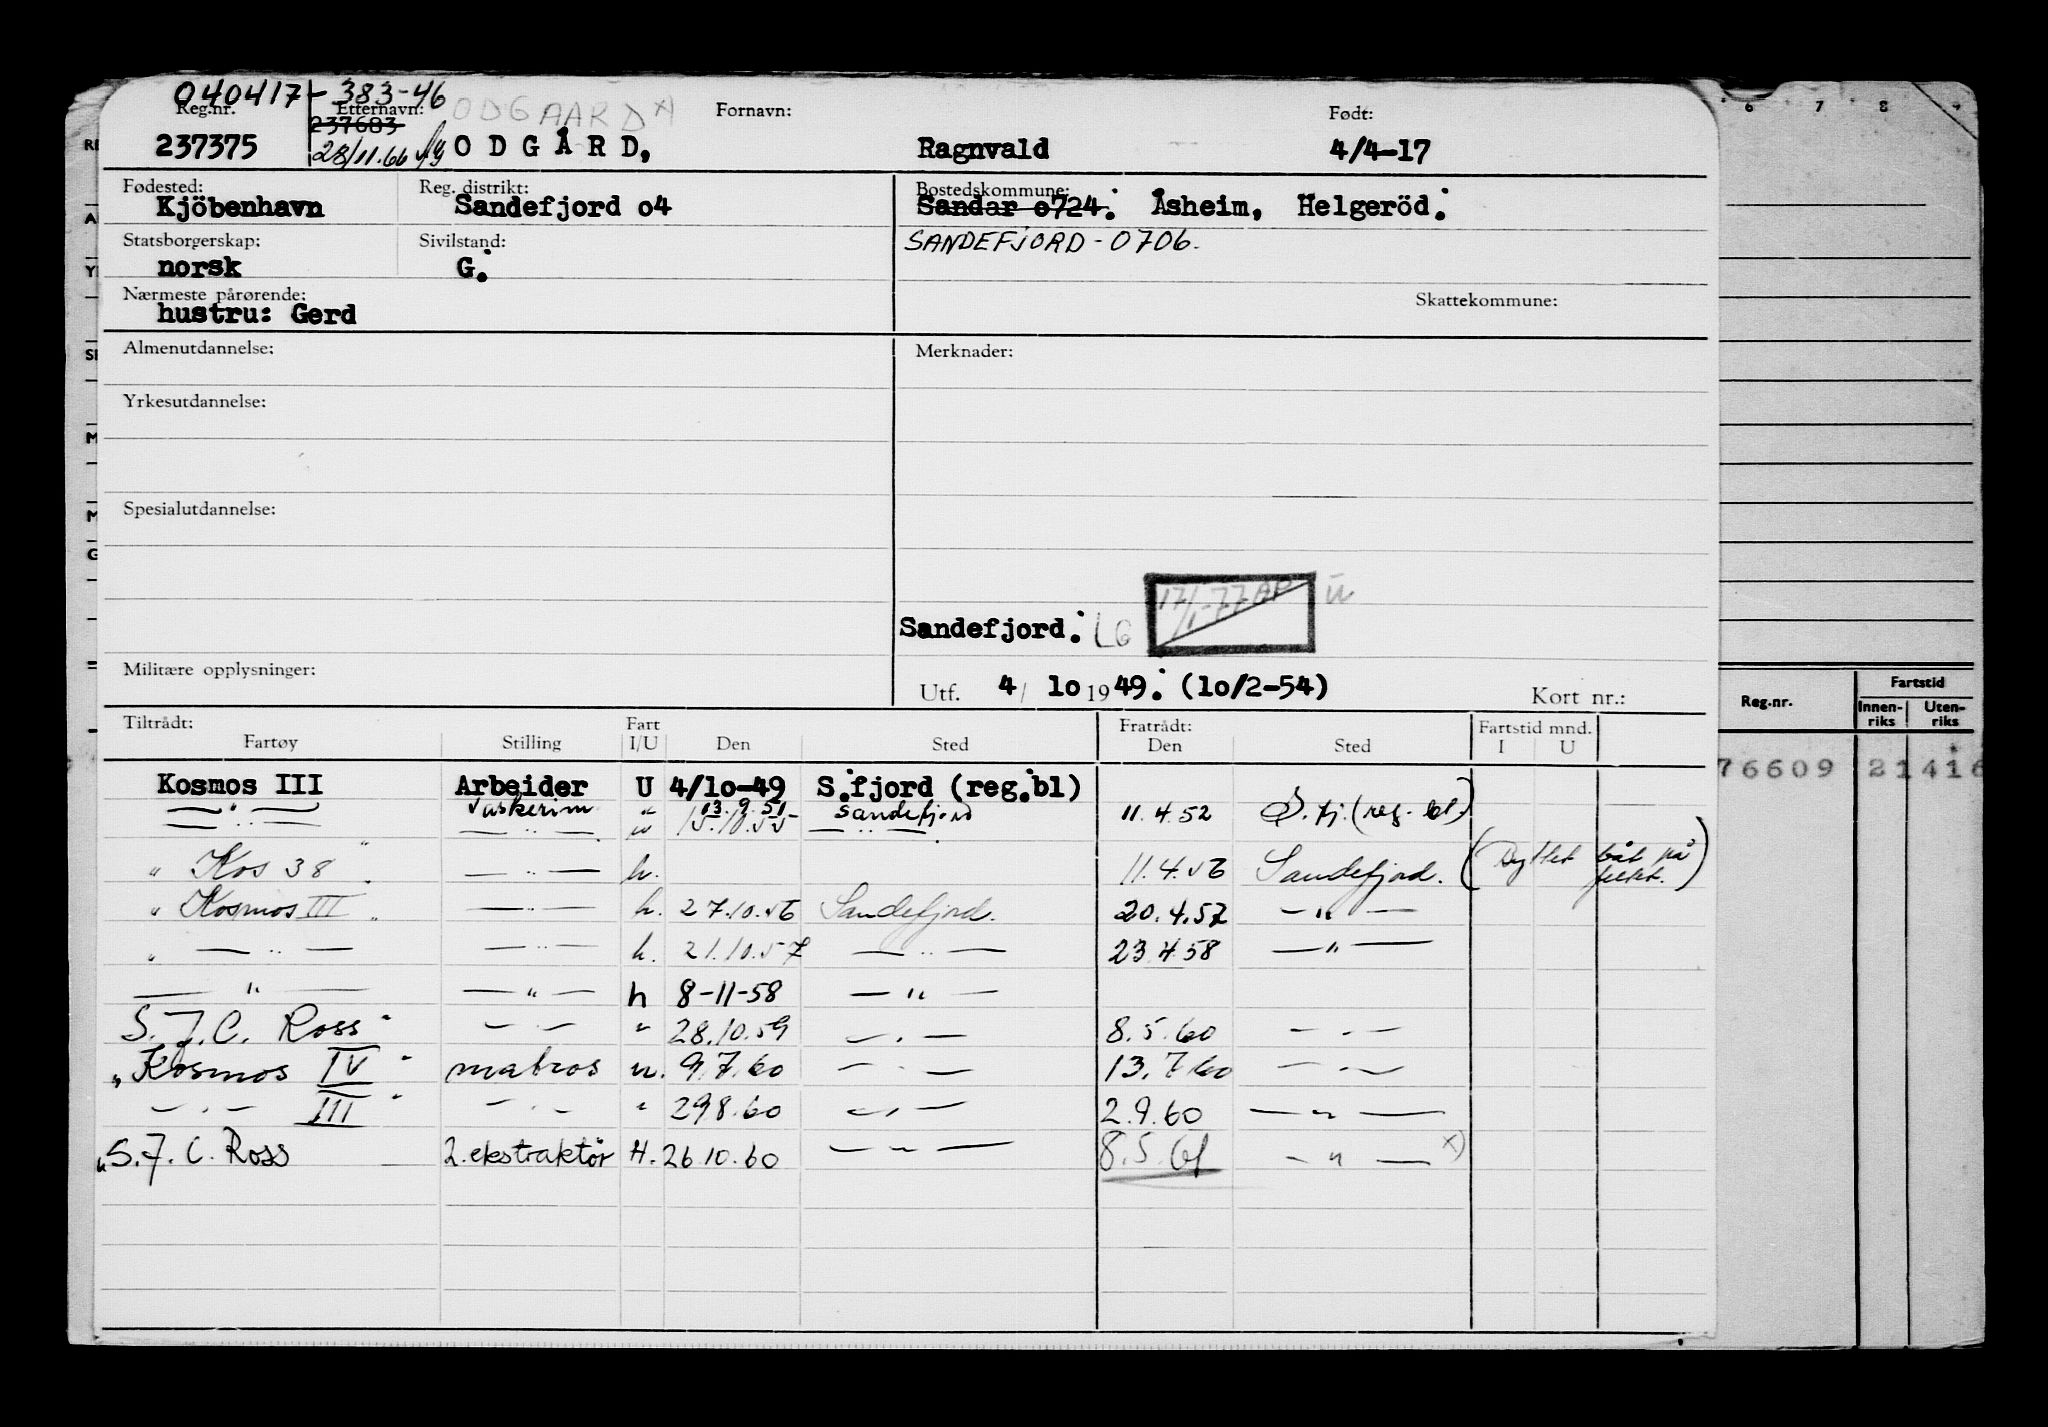 040417-383-46
Reg.nr. Etternavn: ODGAARD x) Fornavn: Født:
237683
237375 28/11.66 ODGÅRD, Ragnvald 4/4-17
Fødested: Reg. distrikt: Bostedskommune:
Kjöbenhavn Sandefjord o4 Sandar o724. Åsheim, Helgeröd.
Statsborgerskap: Sivilstand: SANDEFJORD-0706.
norsk G.
Nærmeste pårørende: Skattekommune:
hustru: Gerd
Almenutdannelse: Merknader:
Yrkesutdannelse:
Spesialutdannelse:
17/1-77 AP
Sandefjord. LG
Militære opplysninger:
Utf. 4/ lo 1949. (lo/2-54) Kort nr.:
Tiltrådt: Fart Fratrådt: Fartstid mnd.
Fartøy Stilling I/U Den Sted Den Sted I U
Kosmos III Arbeider U 4/lo-49 S.fjord (reg.bl)
— " — Vaskerim. " 13.9.51 Sandefjord 11.4.52 S.fj. (reg. bl.)
— " — — " — " 15.10.55 — " —
" Kos 38 " — " — h. 11.4.56 Sandefjord. (Byttet båt på feltet.)
" Kosmos III " — " — h. 27.10.56 Sandefjord. 20.4.57 — " —
" — " — — " — h. 21.10.57 — " — 23.4.58 — " —
— " — — " — h 8-11-58 — " —
S.J.C. Ross " — " — " 28.10.59 — " — 8.5.60 — " —
" Kosmos IV " matros u. 9.7.60 — " — 13.7.60 — " —
— " — III " — " — " 29.8.60 — " — 2.9.60 — " —
" S.J.C. Ross 2. ekstraktör H. 26.10.60 — " — 8.5.61 — " — x)
6 7 8 9
Reg.nr. Fartstid
Innenriks Utenriks
76609 21416